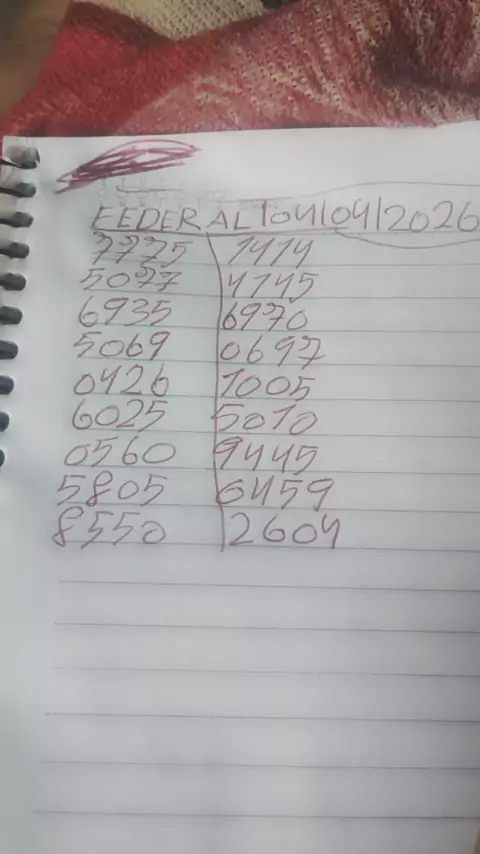 FEDERAL|04|04|2026
7775 1414
5077 4145
6935 6970
5069 0697
0426 1005
6025 5010
0560 9445
5805 6459
8550 2604